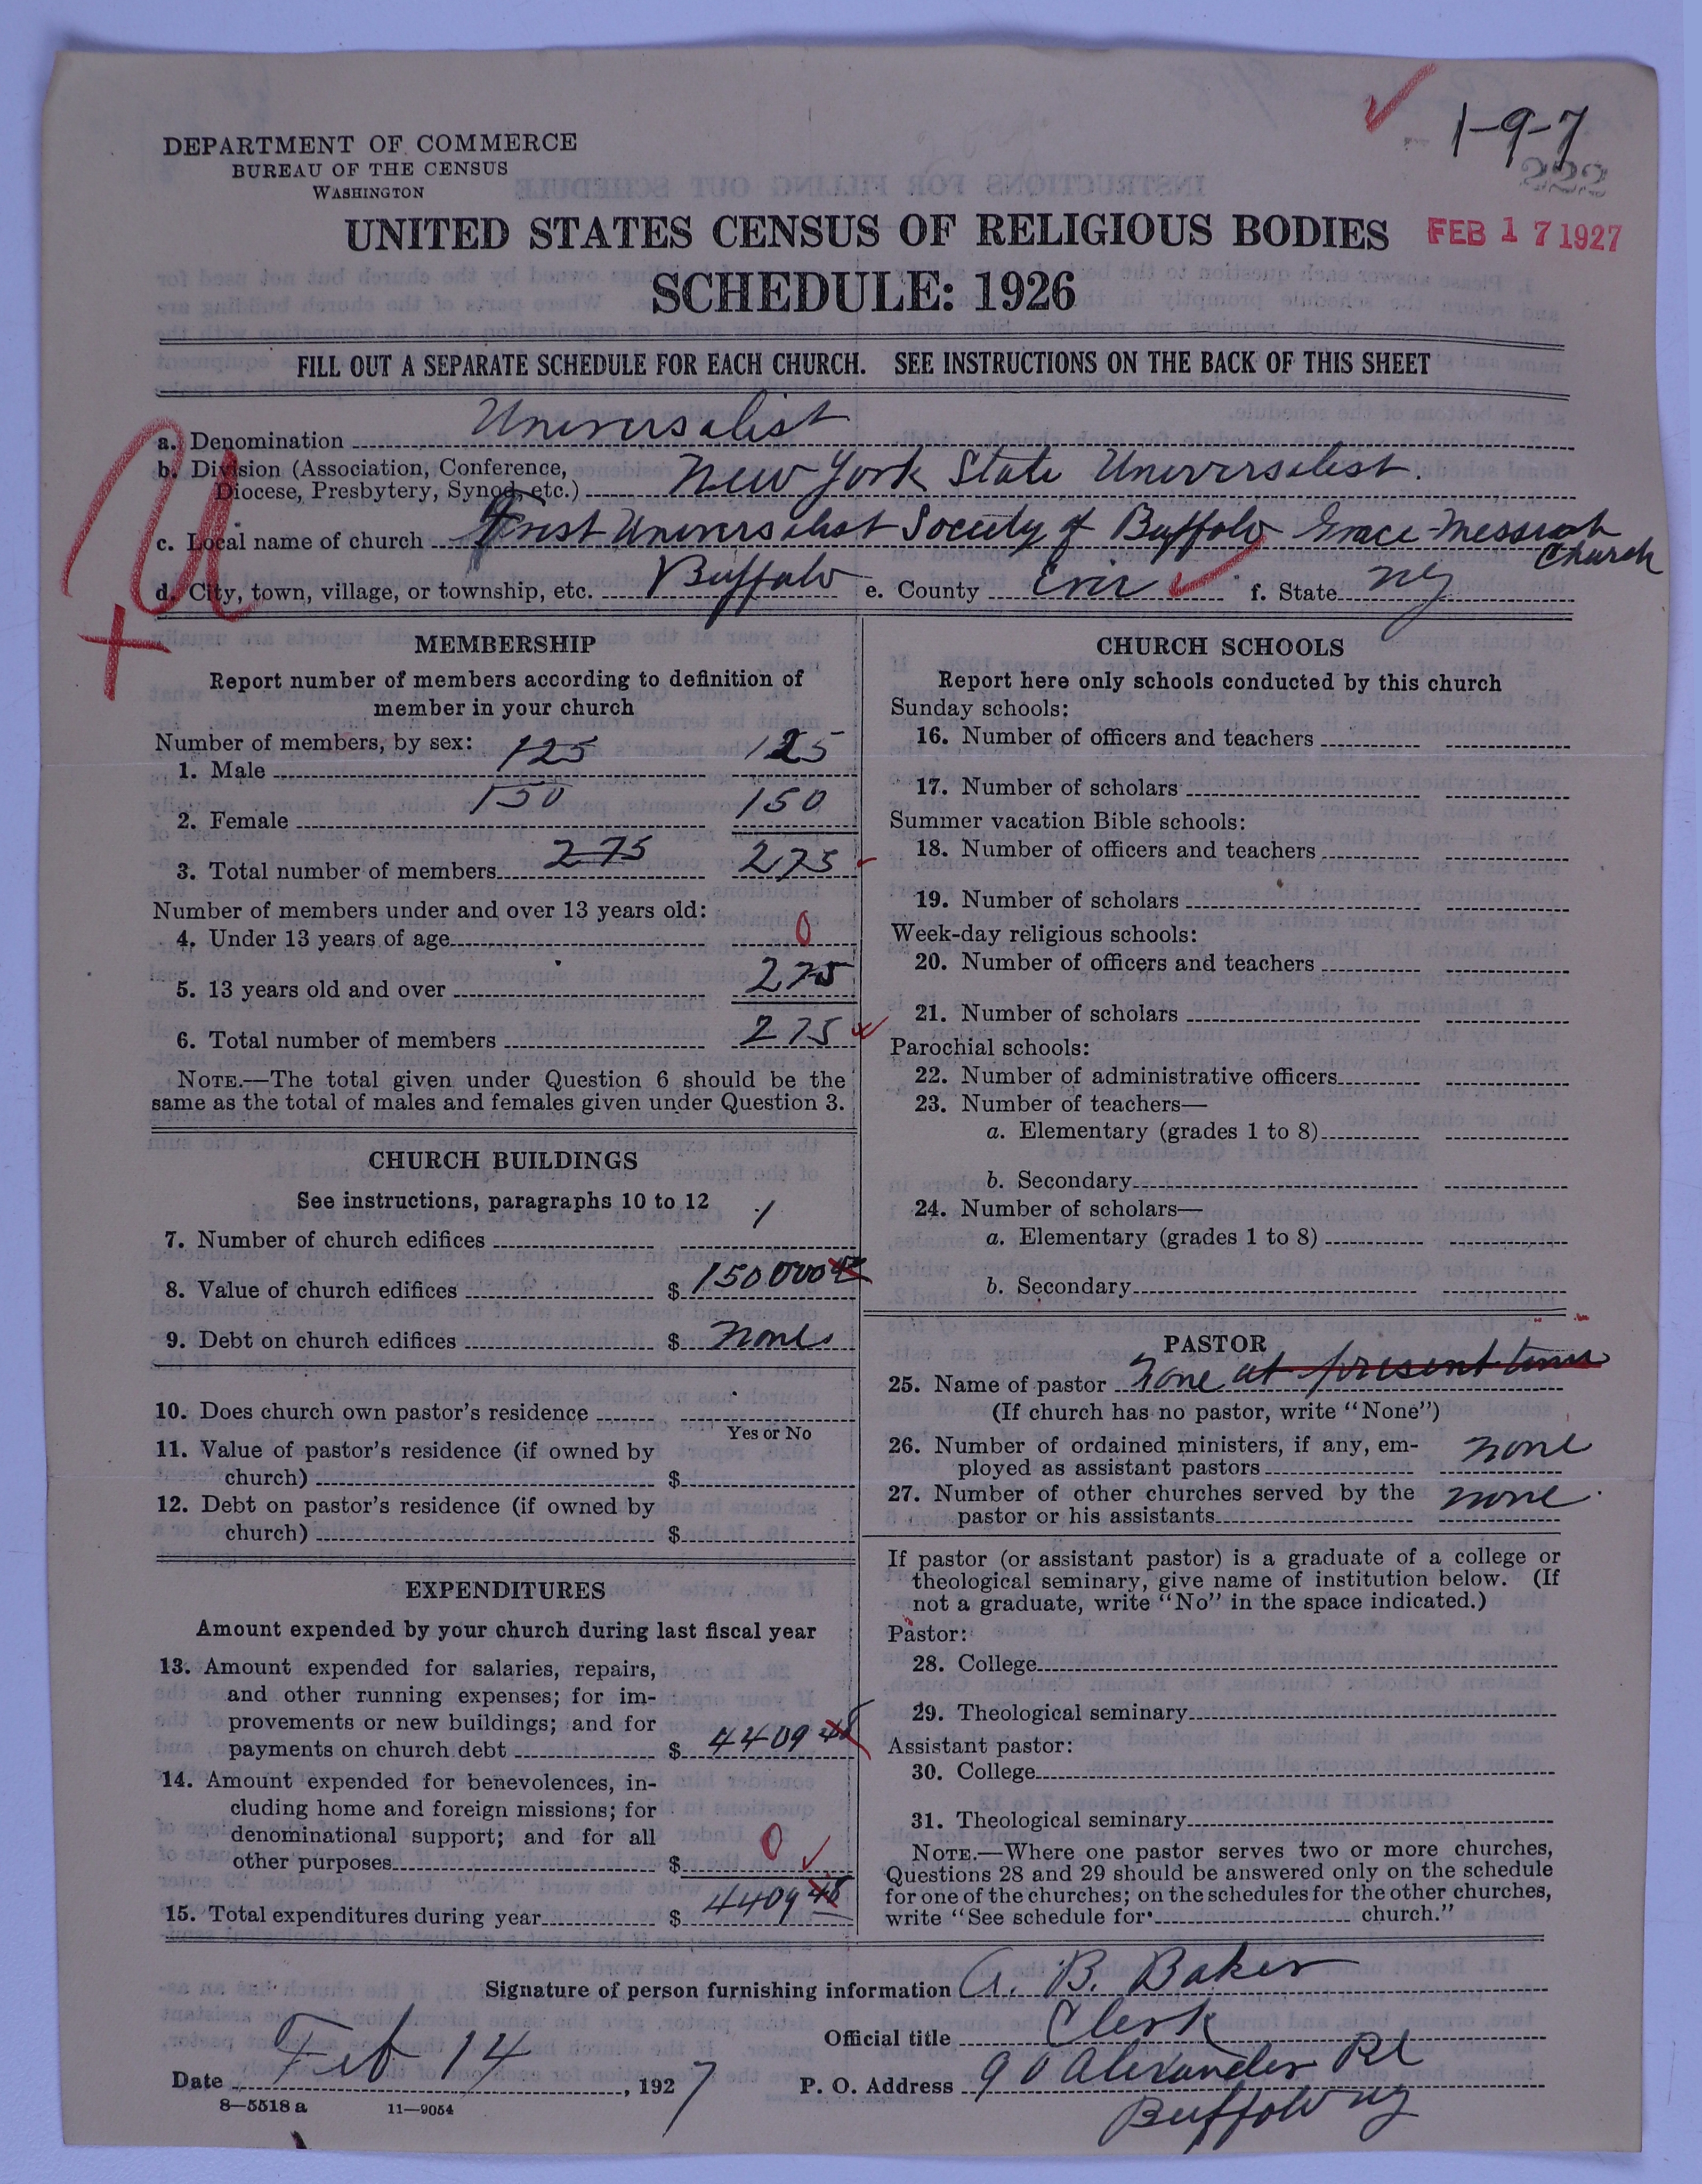 1-9-7
222
DEPARTMENT OF COMMERCE
BUREAU OF THE CENSUS
WASHINGTON
UNITED STATES CENSUS OF RELIGIOUS BODIES
FEB 17 1927
SCHEDULE: 1926
FILL OUT A SEPARATE SCHEDULE FOR EACH CHURCH. SEE INSTRUCTIONS ON THE BACK OF THIS SHEET
U
a. Denomination Universalist
b. Division (Association, Conference,
Diocese, Presbytery, Synod, etc.) New York State Universalist.
c. Local name of church First Universalist Society of Buffalo Grace-Messiah
Church
d. City, town, village, or township, etc. Buffalo e. County Erie f. State NY
MEMBERSHIP
Report number of members according to definition of
member in your church
Number of members, by sex:
1. Male 125 125
2. Female 150 150
3. Total number of members 275 275
Number of members under and over 13 years old:
4. Under 13 years of age 0
5. 13 years old and over 275
6. Total number of members 275
NOTE.—The total given under Question 6 should be the
same as the total of males and females given under Question 3.
CHURCH BUILDINGS
See instructions, paragraphs 10 to 12
7. Number of church edifices 1
8. Value of church edifices $ 150000
9. Debt on church edifices $ none
10. Does church own pastor's residence
Yes or No
11. Value of pastor's residence (if owned by
church) $
12. Debt on pastor's residence (if owned by
church) $
EXPENDITURES
Amount expended by your church during last fiscal year
13. Amount expended for salaries, repairs,
and other running expenses; for im-
provements or new buildings; and for
payments on church debt $ 4409 48
14. Amount expended for benevolences, in-
cluding home and foreign missions; for
denominational support; and for all
other purposes $ 0
15. Total expenditures during year $ 4409 48
CHURCH SCHOOLS
Report here only schools conducted by this church
Sunday schools:
16. Number of officers and teachers
17. Number of scholars
Summer vacation Bible schools:
18. Number of officers and teachers
19. Number of scholars
Week-day religious schools:
20. Number of officers and teachers
21. Number of scholars
Parochial schools:
22. Number of administrative officers
23. Number of teachers—
a. Elementary (grades 1 to 8)
b. Secondary
24. Number of scholars—
a. Elementary (grades 1 to 8)
b. Secondary
PASTOR
25. Name of pastor None at present time
(If church has no pastor, write "None")
26. Number of ordained ministers, if any, em-
ployed as assistant pastors none
27. Number of other churches served by the
pastor or his assistants none
If pastor (or assistant pastor) is a graduate of a college or
theological seminary, give name of institution below. (If
not a graduate, write "No" in the space indicated.)
Pastor:
28. College
29. Theological seminary
Assistant pastor:
30. College
31. Theological seminary
NOTE.—Where one pastor serves two or more churches,
Questions 28 and 29 should be answered only on the schedule
for one of the churches; on the schedules for the other churches,
write "See schedule for church."
Signature of person furnishing information A. B. Baker
Official title Clerk
Date Feb 14, 1927 P. O. Address 90 Alexander Pl
Buffalo NY
8—5518 a 11—9054